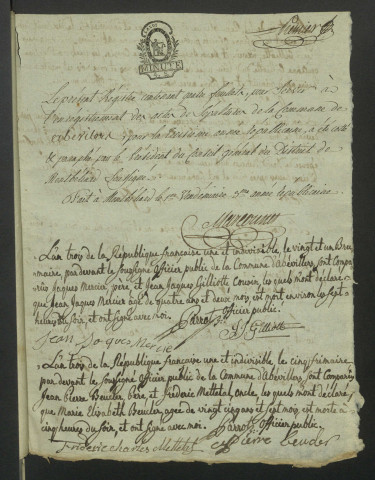 Premier
MINUTE
Le présent Registre contenant quatre feuillets, pour Servir à
l'enregistrement des actes de Sépulture de la Commune de
Abévillers pour la troisième année républicaine, a été coté
& paraphé par le Président du Conseil général du District de
Montbéliard soussigné
Fait à Montbéliard le 1er Vendémiaire 3me année républicaine.
L'an trois de la République françoise une et indivisible, le vingt et un Bru-
maire, par devant le soussigné Officier public de la Commune d'abévillers, sont Compa-
rûs Jaques Mercier, pere, et Jean Jaques Gilliotte Cousin, lesquels m'ont déclaré
que Jean Jaques Mercier agé de quatre ans et deux mois, est mort environ les sept
heures du soir, et ont signé avec moi.
Parrot officier public.
Jean Jacques Mercie
J J Gilliotte
L'an trois de la République françoise une et indivisible, le cinq frimaire
par devant le soussigné Officier public de la Commune d'abévillers sont Comparûs
Jean Pierre Beucler, pere, et Frédéric Mettetal, oncle, les quels m'ont déclaré
que Marie Elizabeth Beucler, agée de vingt cinq ans et sept mois, est morte à
cinq heures du soir, et ont signé avec moi.
Parrot officier public.
Frideric charles Mettetal
pierre beucler